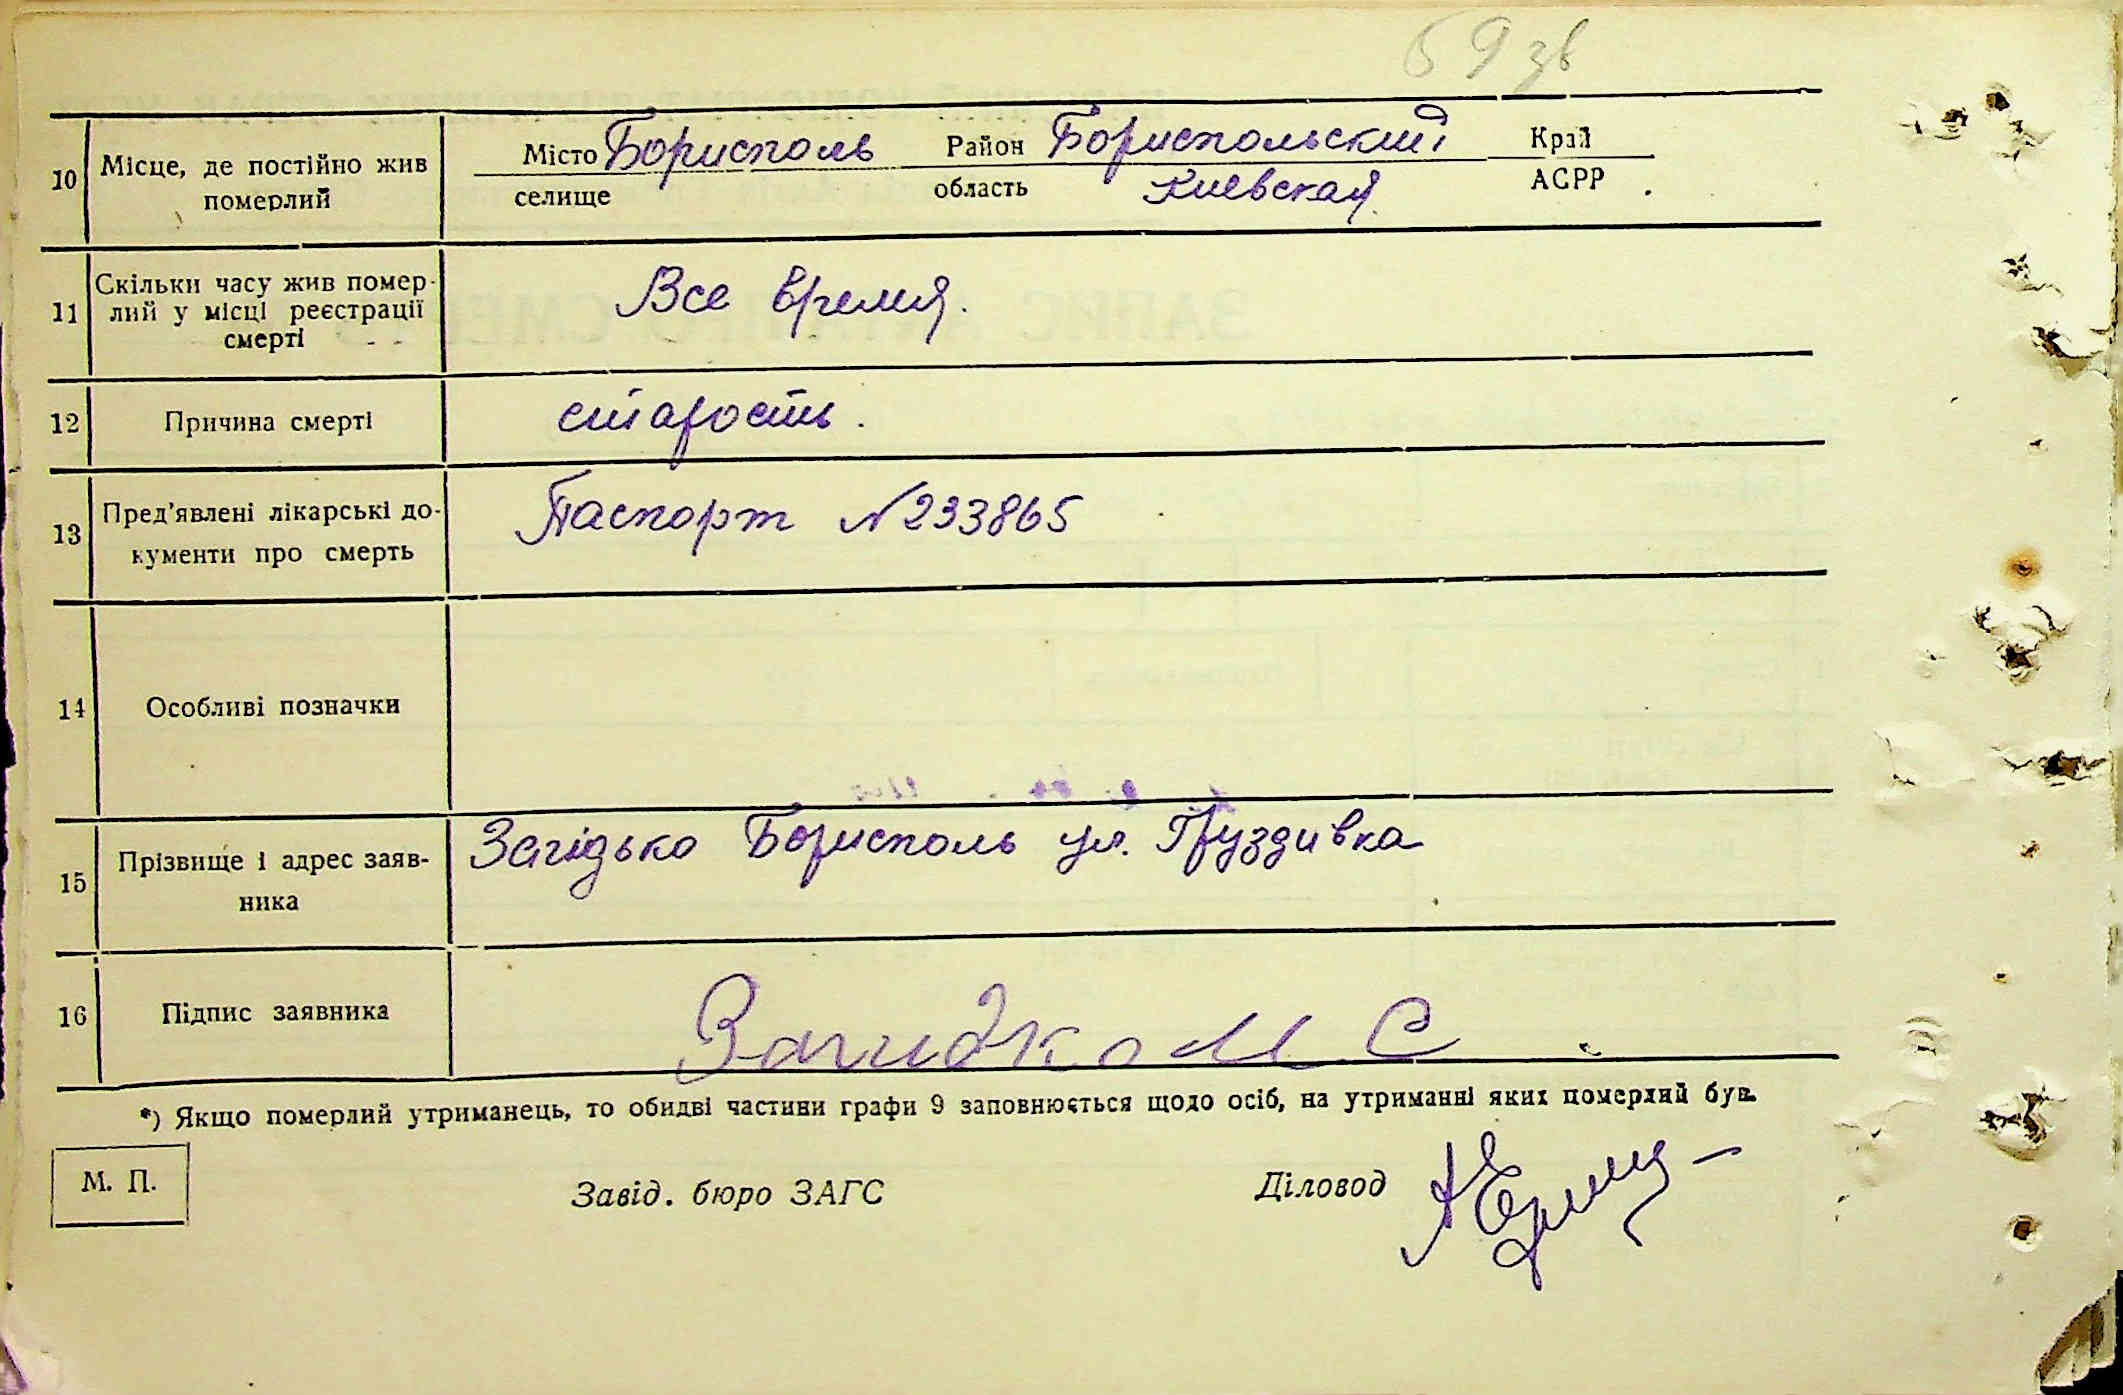 69 зв
10 Місце, де постійно жив померлий Місто Борисполь Район Бориспольский Край
селище область Киевская АСРР
11 Скільки часу жив помер-
лий у місці реєстрації
смерті
Все время.
12 Причина смерті старость.
13 Пред'явлені лікарські до-
кументи про смерть
Паспорт №233865
14 Особливі позначки
15 Прізвище і адрес заяв-
ника
Загідько Борисполь ул. Груздивка
16 Підпис заявника Загидко М С
*) Якщо померлий утриманець, то обидві частини графи 9 заповнюється щодо осіб, на утриманні яких померлий був.
М. П. Завід. бюро ЗАГС Діловод